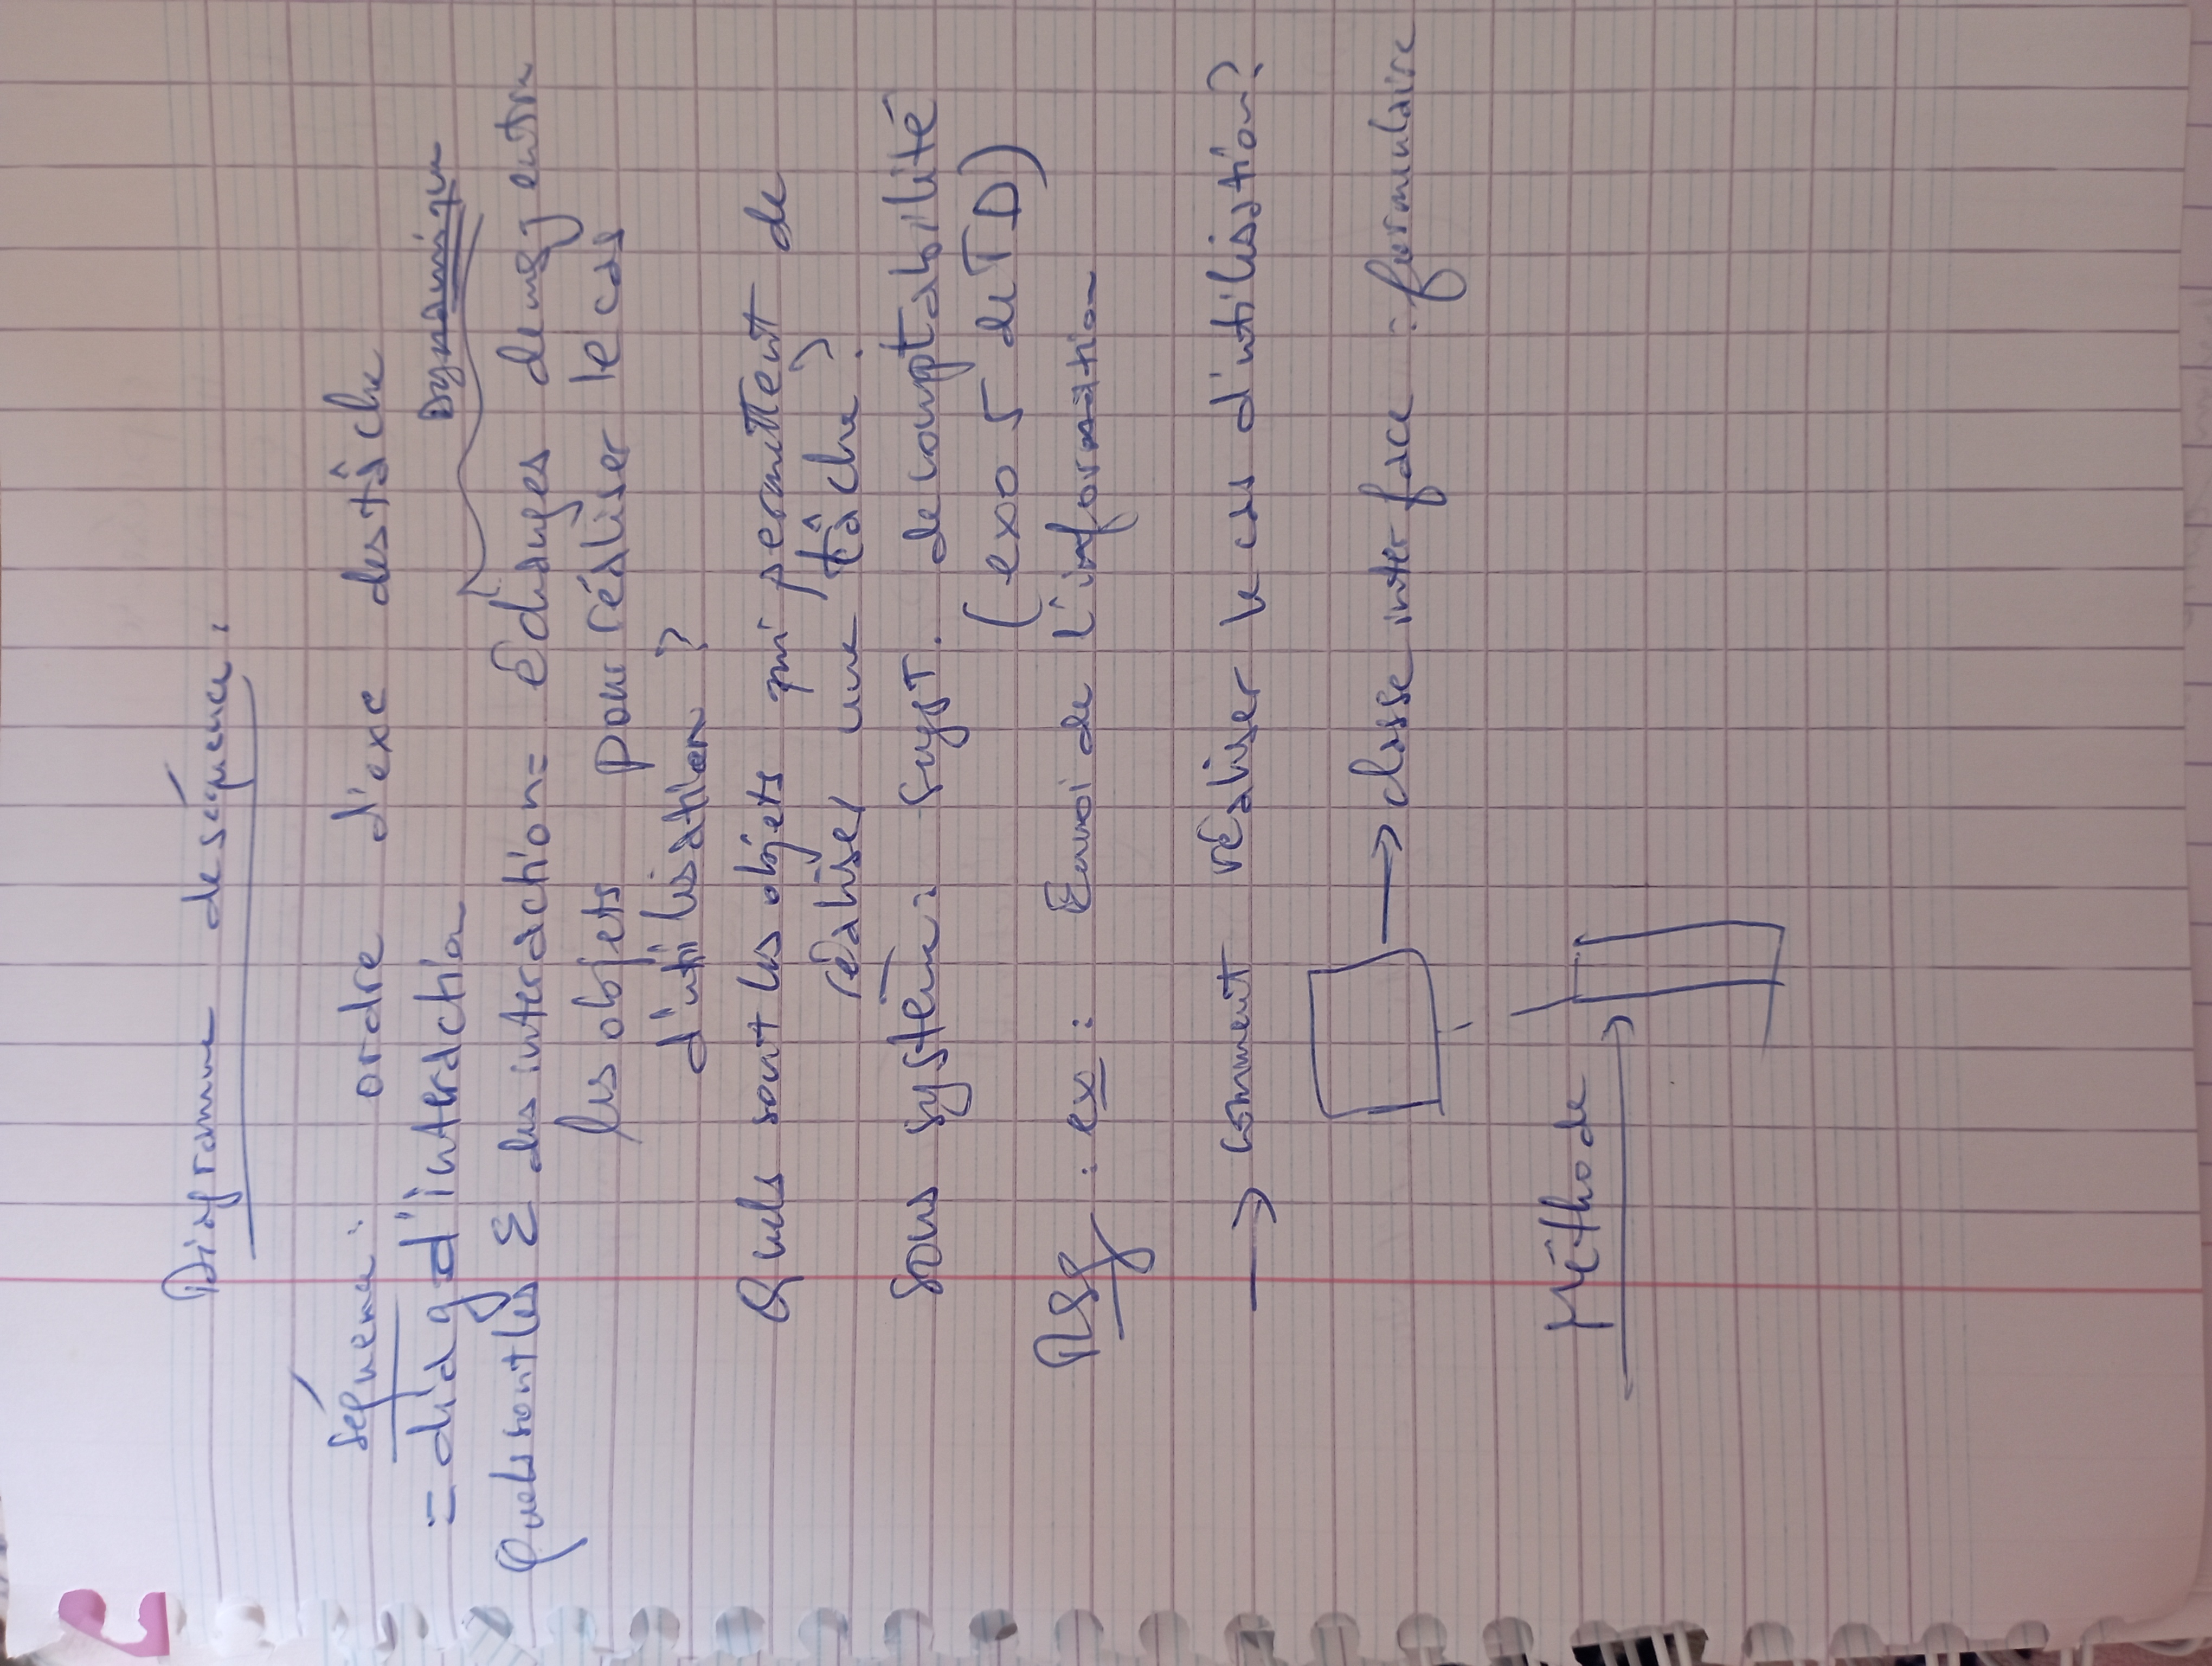 Diagramme de séquence :
séquence : ordre d'exe des tâche
= diag d'interaction
Dynamique
Quels sont les Σ des interaction = Échanges de msg entre
les objets pour réaliser le cas
d'utilisation ?
Quels sont les objets qui permettent de
réaliser une tâche ?
Sous système : syst. de comptabilité
(exo 5 de TD)
MSg : ex : Envoi de l'information
→ comment réaliser le cas d'utilisation ?
→ classe interface : formulaire
Méthode